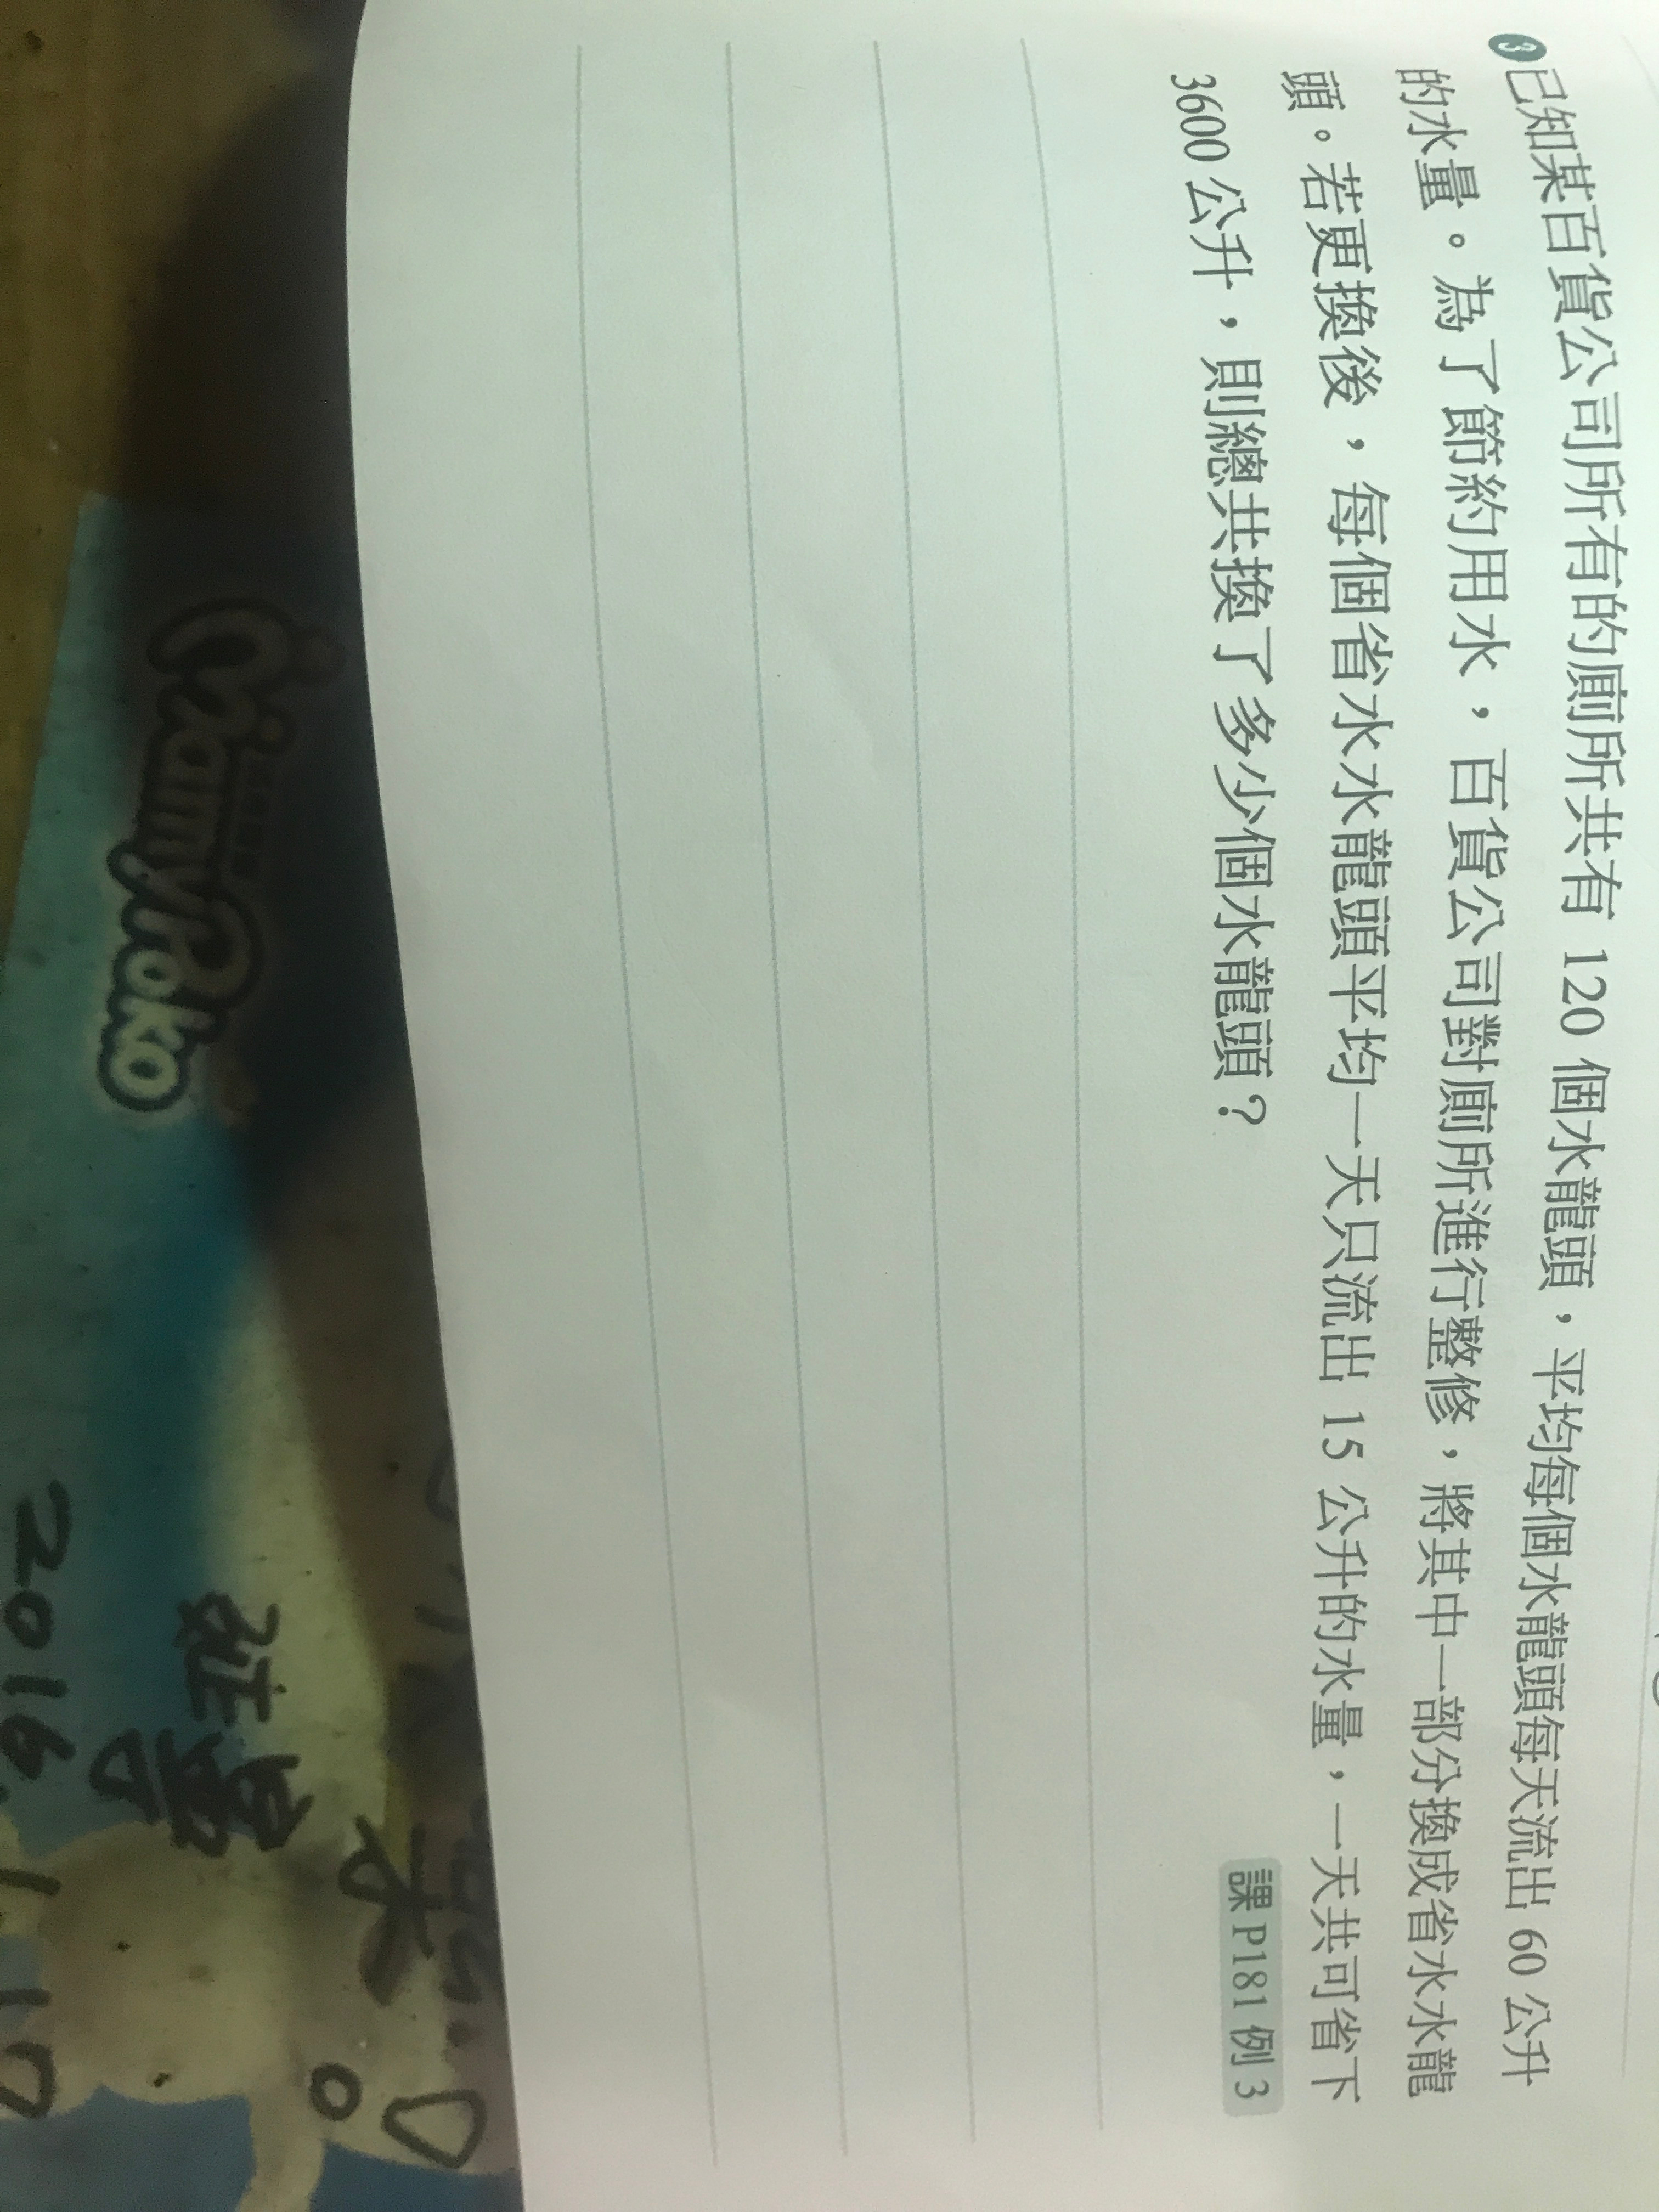 3 已知某百貨公司所有的廁所共有 120 個水龍頭，平均每個水龍頭每天流出 60 公升
的水量。為了節約用水，百貨公司對廁所進行整修，將其中一部分換成省水水龍
頭。若更換後，每個省水水龍頭平均一天只流出 15 公升的水量，一天共可省下
3600 公升，則總共換了多少個水龍頭？
課 P181 例 3
MamyPoko
2016.